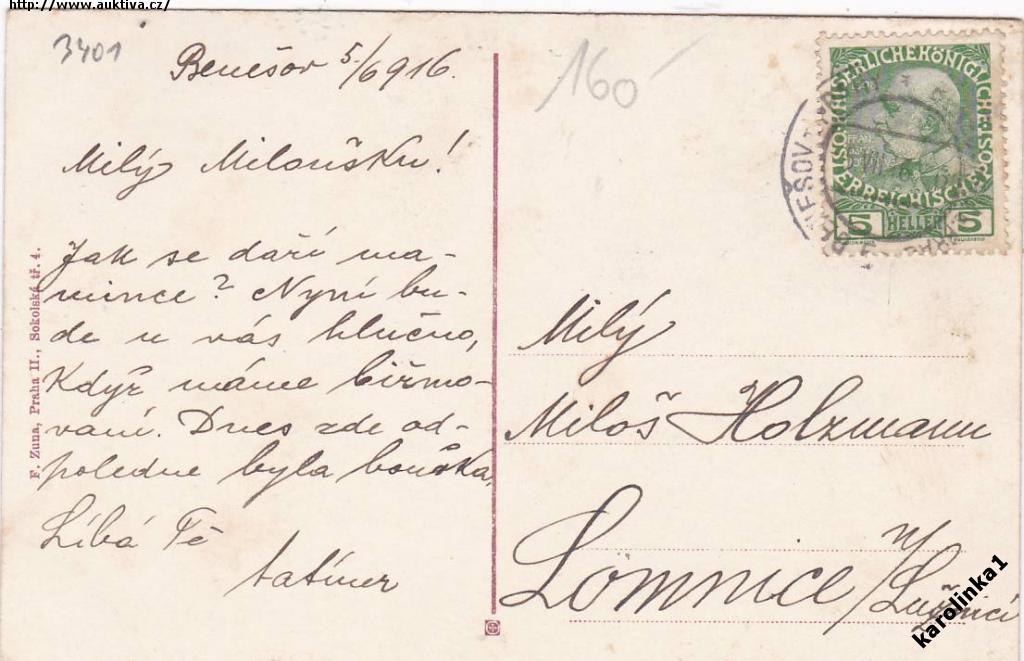 http://www.auktiva.cz/
3401
Benešov 5/6 916.
160
Milý Miloušku!
Jak se daří ma-
mince? Nyní bu-
de u vás hlučno,
když máme biřmo-
vání. Dnes zde od-
poledne byla bouřka.
Líbá Tě
tatínek
F. Zuna, Praha II., Sokolská tř. 4.
KAISERLICHE KÖNIGLICHE
ÖSTERREICHISCHE POST
5 HELLER 5
BENEŠOV
Milý
Miloš Holzmann
Lomnice n/
Lužnicí
karolinka1